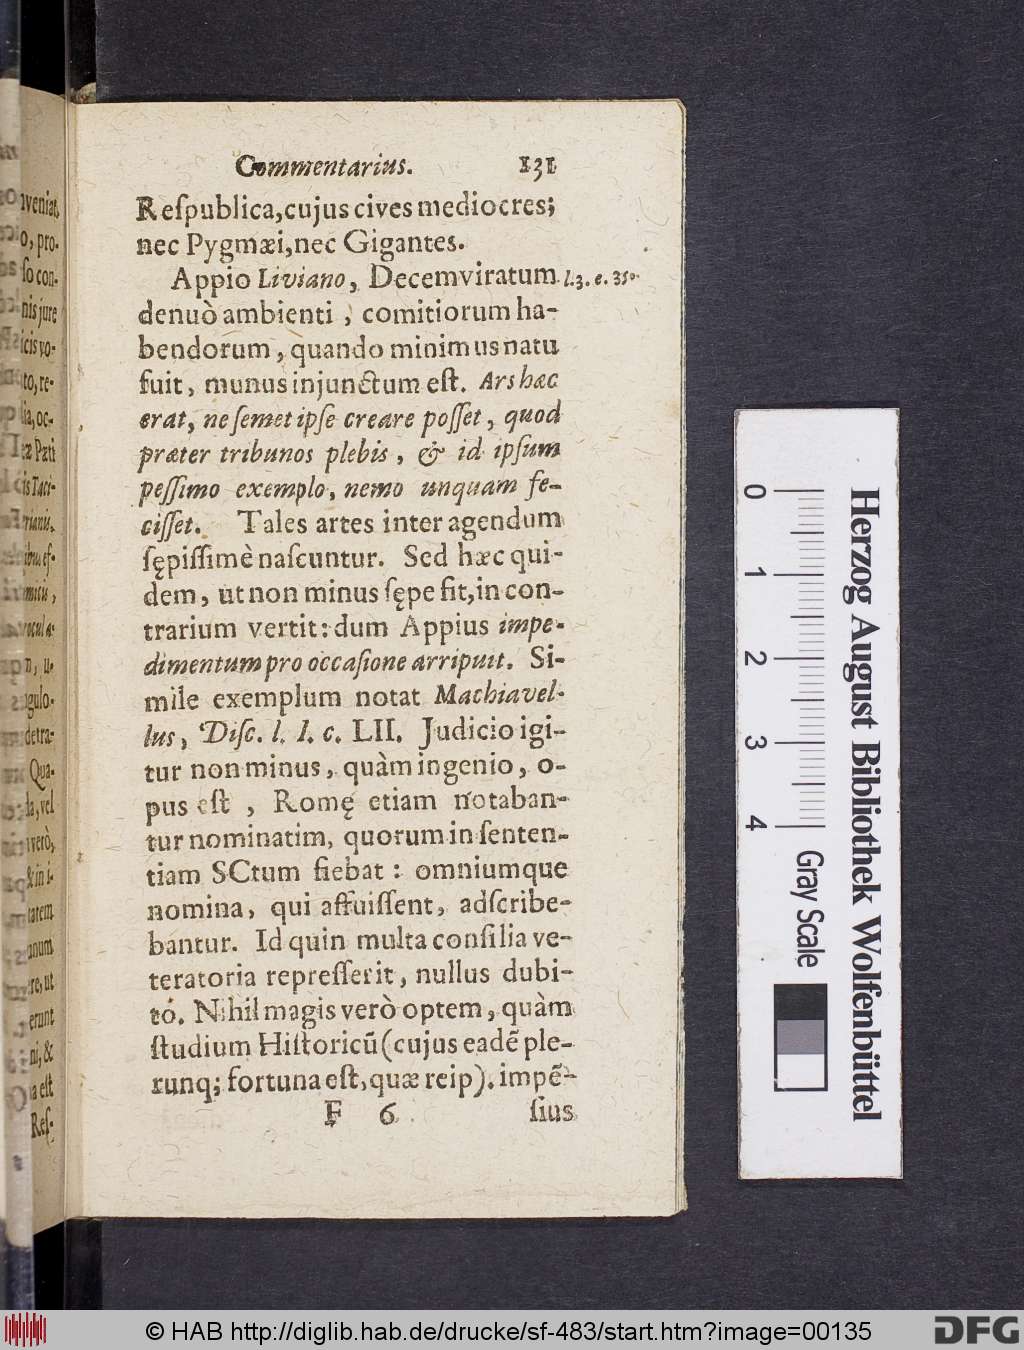 Commentarius. 131
Reſpublica, cujus cives mediocres;
nec Pygmæi, nec Gigantes.
Appio Liviano, Decemviratum l.3. c. 35.
denuò ambienti, comitiorum ha-
bendorum, quando minimus natu
fuit, munus injunctum eſt. Ars hæc
erat, ne ſemet ipſe creare poſſet, quod
præter tribunos plebis, & id ipſum
peſſimo exemplo, nemo unquam fe-
ciſſet. Tales artes inter agendum
ſępiſſimè naſcuntur. Sed hæc qui-
dem, ut non minus ſępe fit, in con-
trarium vertit: dum Appius impe-
dimentum pro occaſione arripuit. Si-
mile exemplum notat Machiavel-
lus, Diſc. l. l. c. LII. Judicio igi-
tur non minus, quàm ingenio, o-
pus eſt, Romę etiam notaban-
tur nominatim, quorum in ſenten-
tiam SCtum fiebat: omniumque
nomina, qui affuiſſent, adſcribe-
bantur. Id quin multa conſilia ve-
teratoria repreſſerit, nullus dubi-
to. Nihil magis verò optem, quàm
ſtudium Hiſtoricũ (cujus eadẽ ple-
runq; fortuna eſt, quæ reip). impẽ-
F 6 ſius
nveniat,
o, pro-
ſo con-
nis jure
icis vo-
to, re-
lia, oc-
æ Pæti
is Taci-
rianis,
ibus ef-
micis,
rocul a-
n, u-
gulo-
detra-
Qua-
la, vel
verò,
& in i-
tatem
anum
re, ut
erunt
ni, &
a eſt
Reſ-
0 1 2 3 4
Gray Scale
Herzog August Bibliothek Wolfenbüttel
© HAB http://diglib.hab.de/drucke/sf-483/start.htm?image=00135
DFG